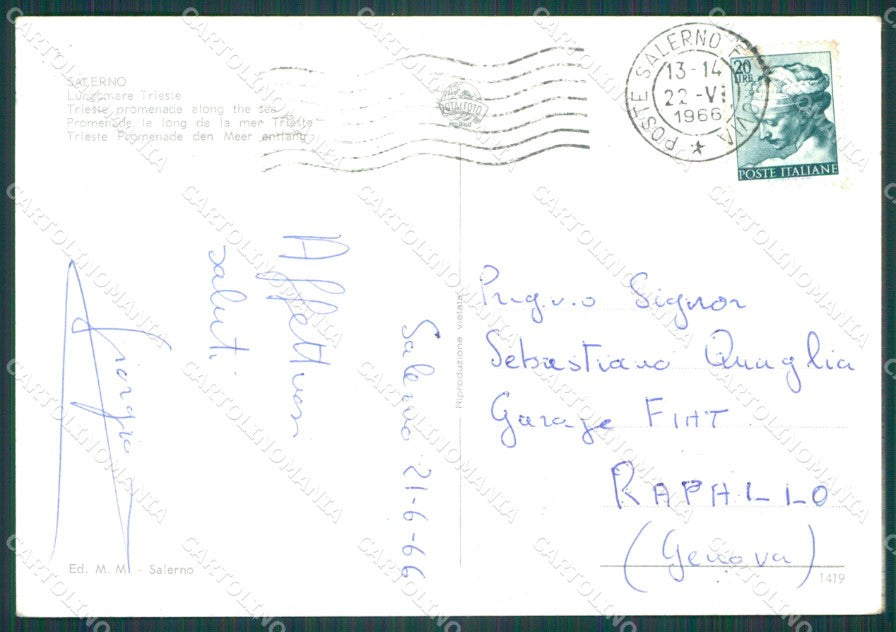 SALERNO
Lungomare Trieste
Trieste promenade along the sea
Promenade le long de la mer Trieste
Trieste Promenade den Meer entlang
POSTE SALERNO
13-14
22-VI
1966
20
LIRE
POSTE ITALIANE
Salerno 21-6-66
Affettuosi
saluti
Giorgio
Riproduzione vietata
Preg.mo Signor
Sebastiano Quaglia
Garage FIAT
RAPALLO
(Genova)
Ed. M. M. - Salerno
1419
CARTOLINOMANIA